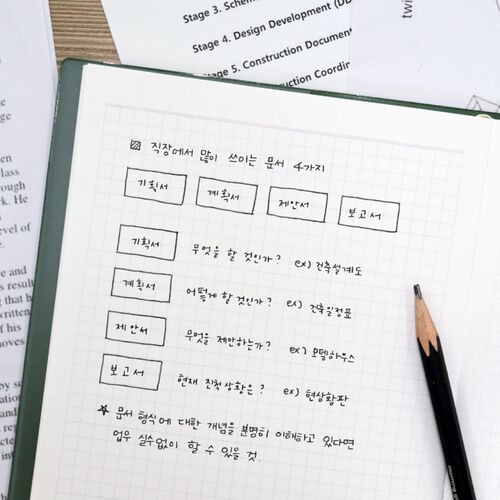 Stage 3. Schem
Stage 4. Design Development (DD
Stage 5. Construction Document
uction Coordin
twi
직장에서 많이 쓰이는 문서 4가지
기획서 계획서 제안서 보고서
기획서 무엇을 할 것인가? ex) 건축설계도
계획서 어떻게 할 것인가? ex) 건축일정표
제안서 무엇을 제안하는가? ex) 모델하우스
보고서 현재 진척상황은? ex) 현상황판
☆ 문서 형식에 대한 개념을 분명히 이해하고 있다면
업무 실수없이 할 수 있을 것.
the
age
tten
lass
rough
rk. He
evel of
e and
s result
ng that h
written
of his
moves